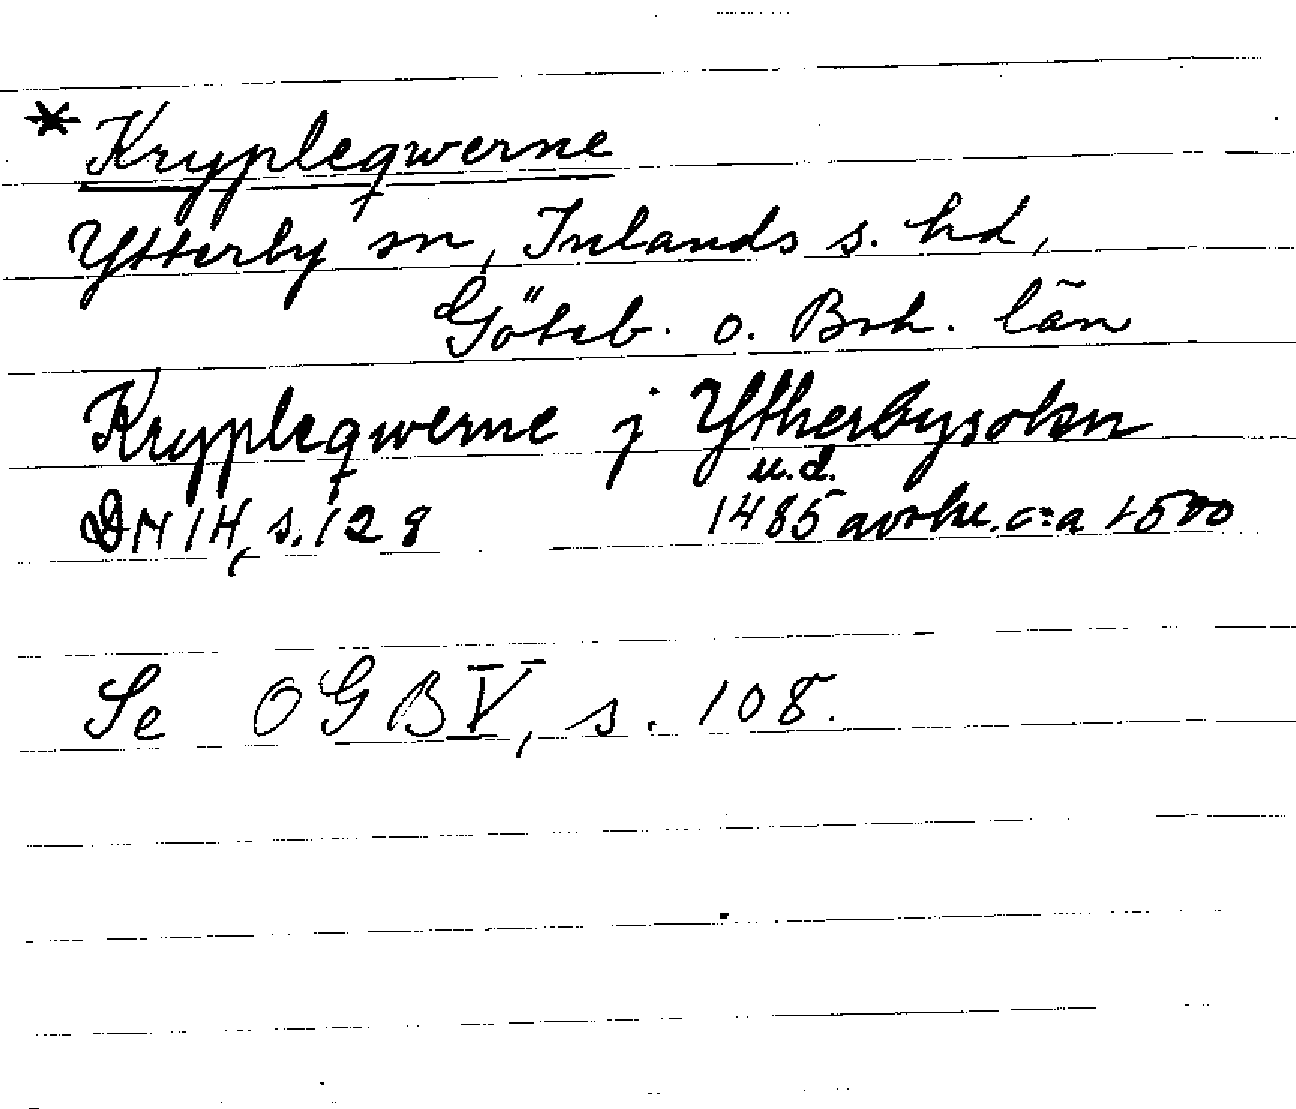 * Krypleqwerne
Ytterby sn, Inlands s. hd,
Göteb. o. Boh. län
Krypleqwerne j Ytherbysokn
u.d.
DN 14, s. 128 1485 avskr. c:a 1500
Se OGB V, s. 108.